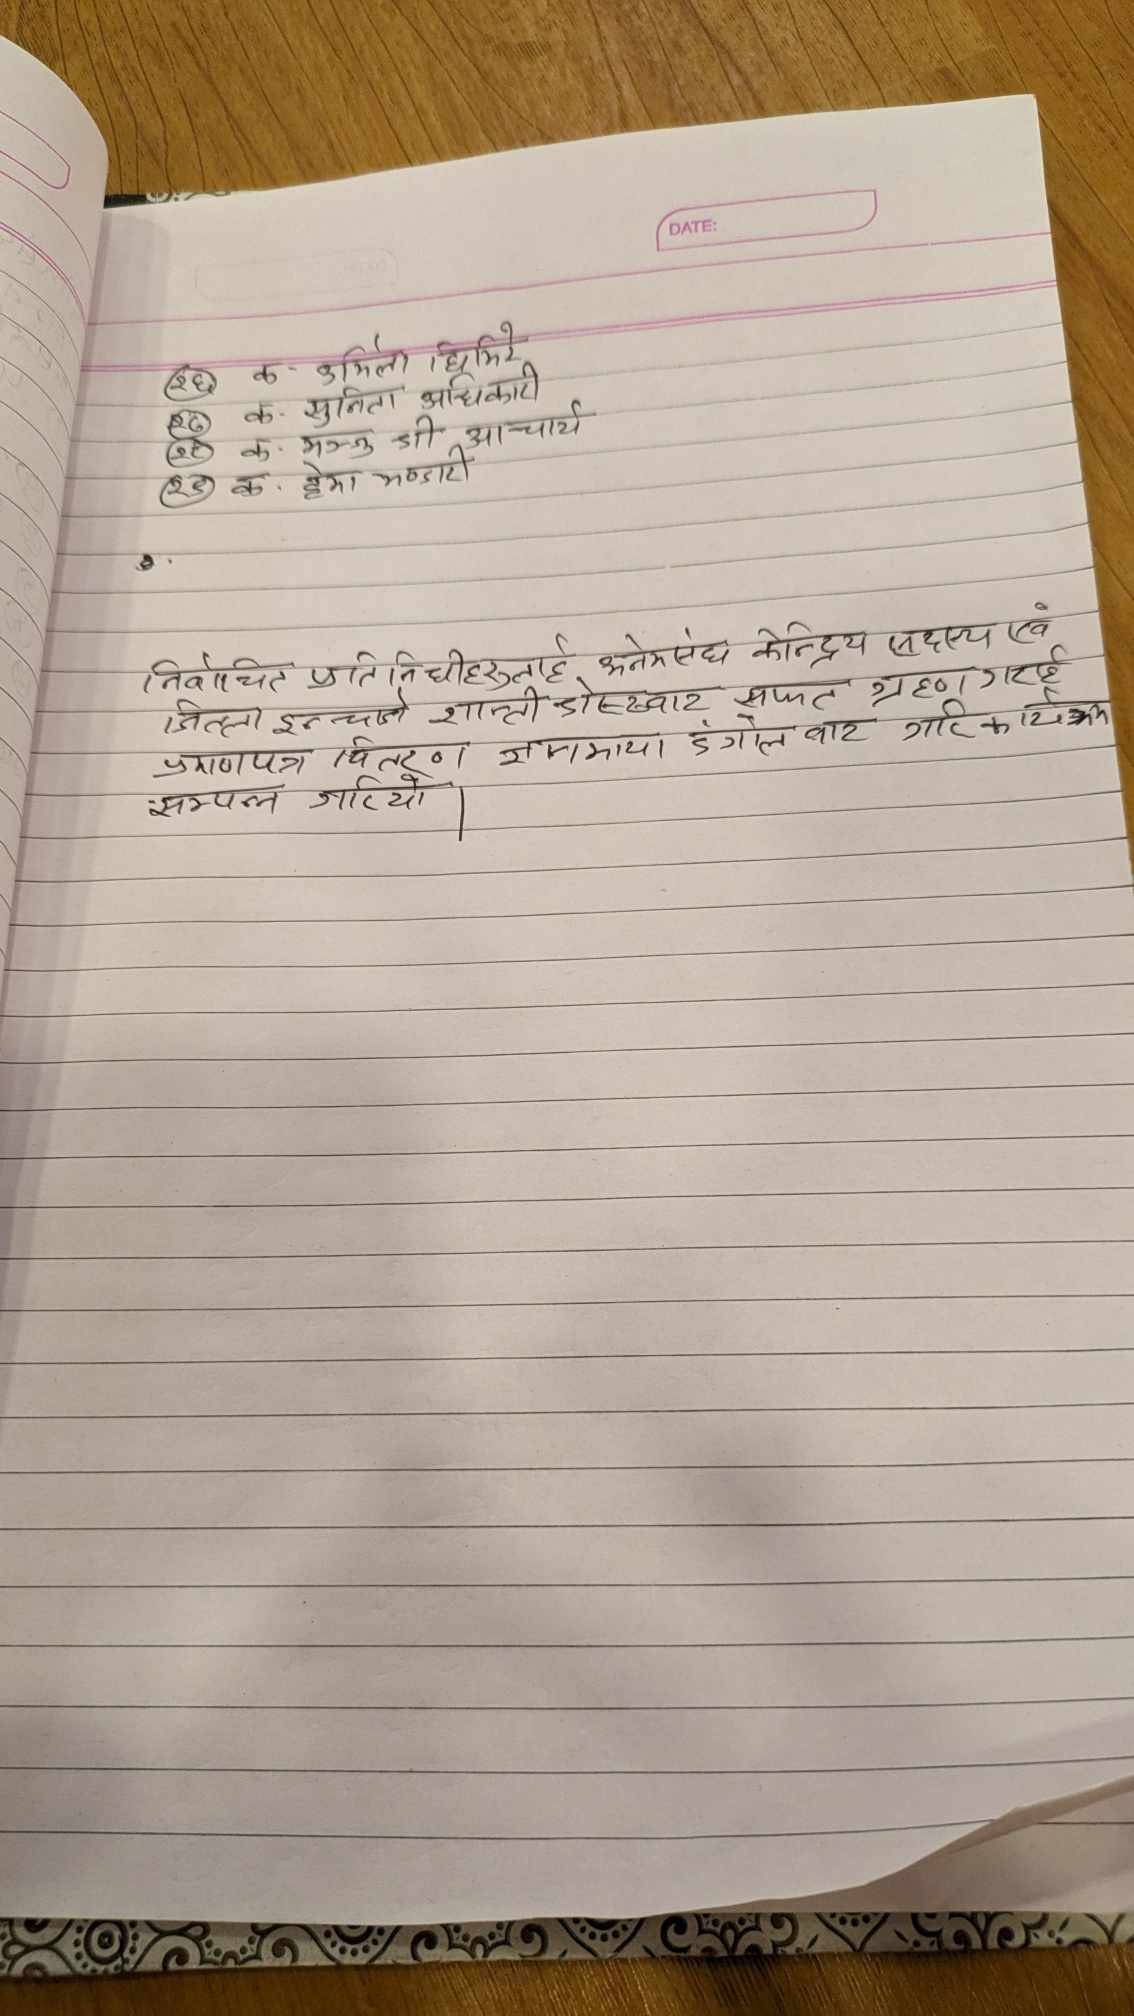 DATE:
(२६) क. उर्मिला घिमिरे
(२७) क. सुनिता अधिकारी
(२८) क. मञ्जु श्री आचार्य
(२९) क. हेमा भण्डारी
निर्वाचित प्रतिनिधीहरुलाई अनेमसंघ केन्द्रिय सदस्य एवं
जिल्ला इन्चार्ज शान्ती श्रेष्ठबाट सफत ग्रहण गराई
प्रमाणपत्र वितरण डंगोल बाट गरि कार्यक्रम
सम्पन्न गरियो |